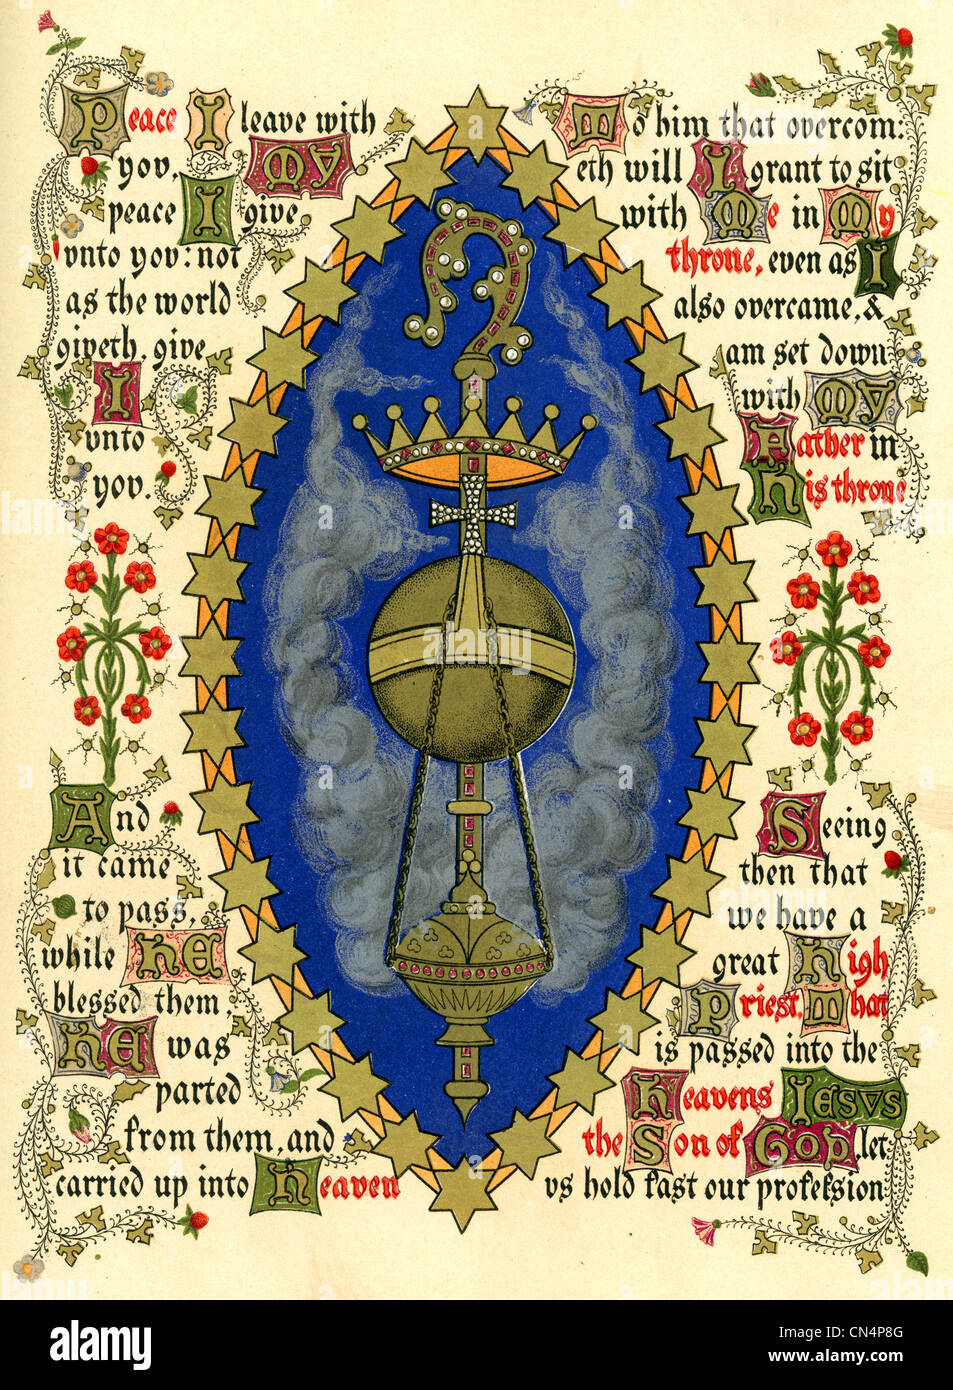 Peace I leave with
yov, My
peace I give
vnto yov: not
as the world
giveth, give
I
vnto
yov.
To him that overcom:
eth will I grant to sit
with Me in My
throne, even as I
also overcame, &
am set down
with My
Father in
His throne
And
it came
to pass,
while HE
blessed them,
HE was
parted
from them, and
carried up into Heaven
Seeing
then that
we have a
great High
Priest, That
is passed into the
Heavens Jesvs
the Son of God, let
vs hold fast our profession
alamy
Image ID: CN4P8G
www.alamy.com